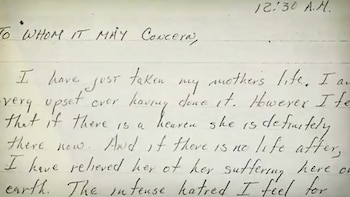 12:30 A.M.
TO WHOM IT MAY CONCERN,
I have just taken my mother's life. I a
very upset over having done it. However I fe
that if there is a heaven she is definitely
there now. And if there is no life after,
I have relieved her of her suffering here o
earth. The intense hatred I feel for